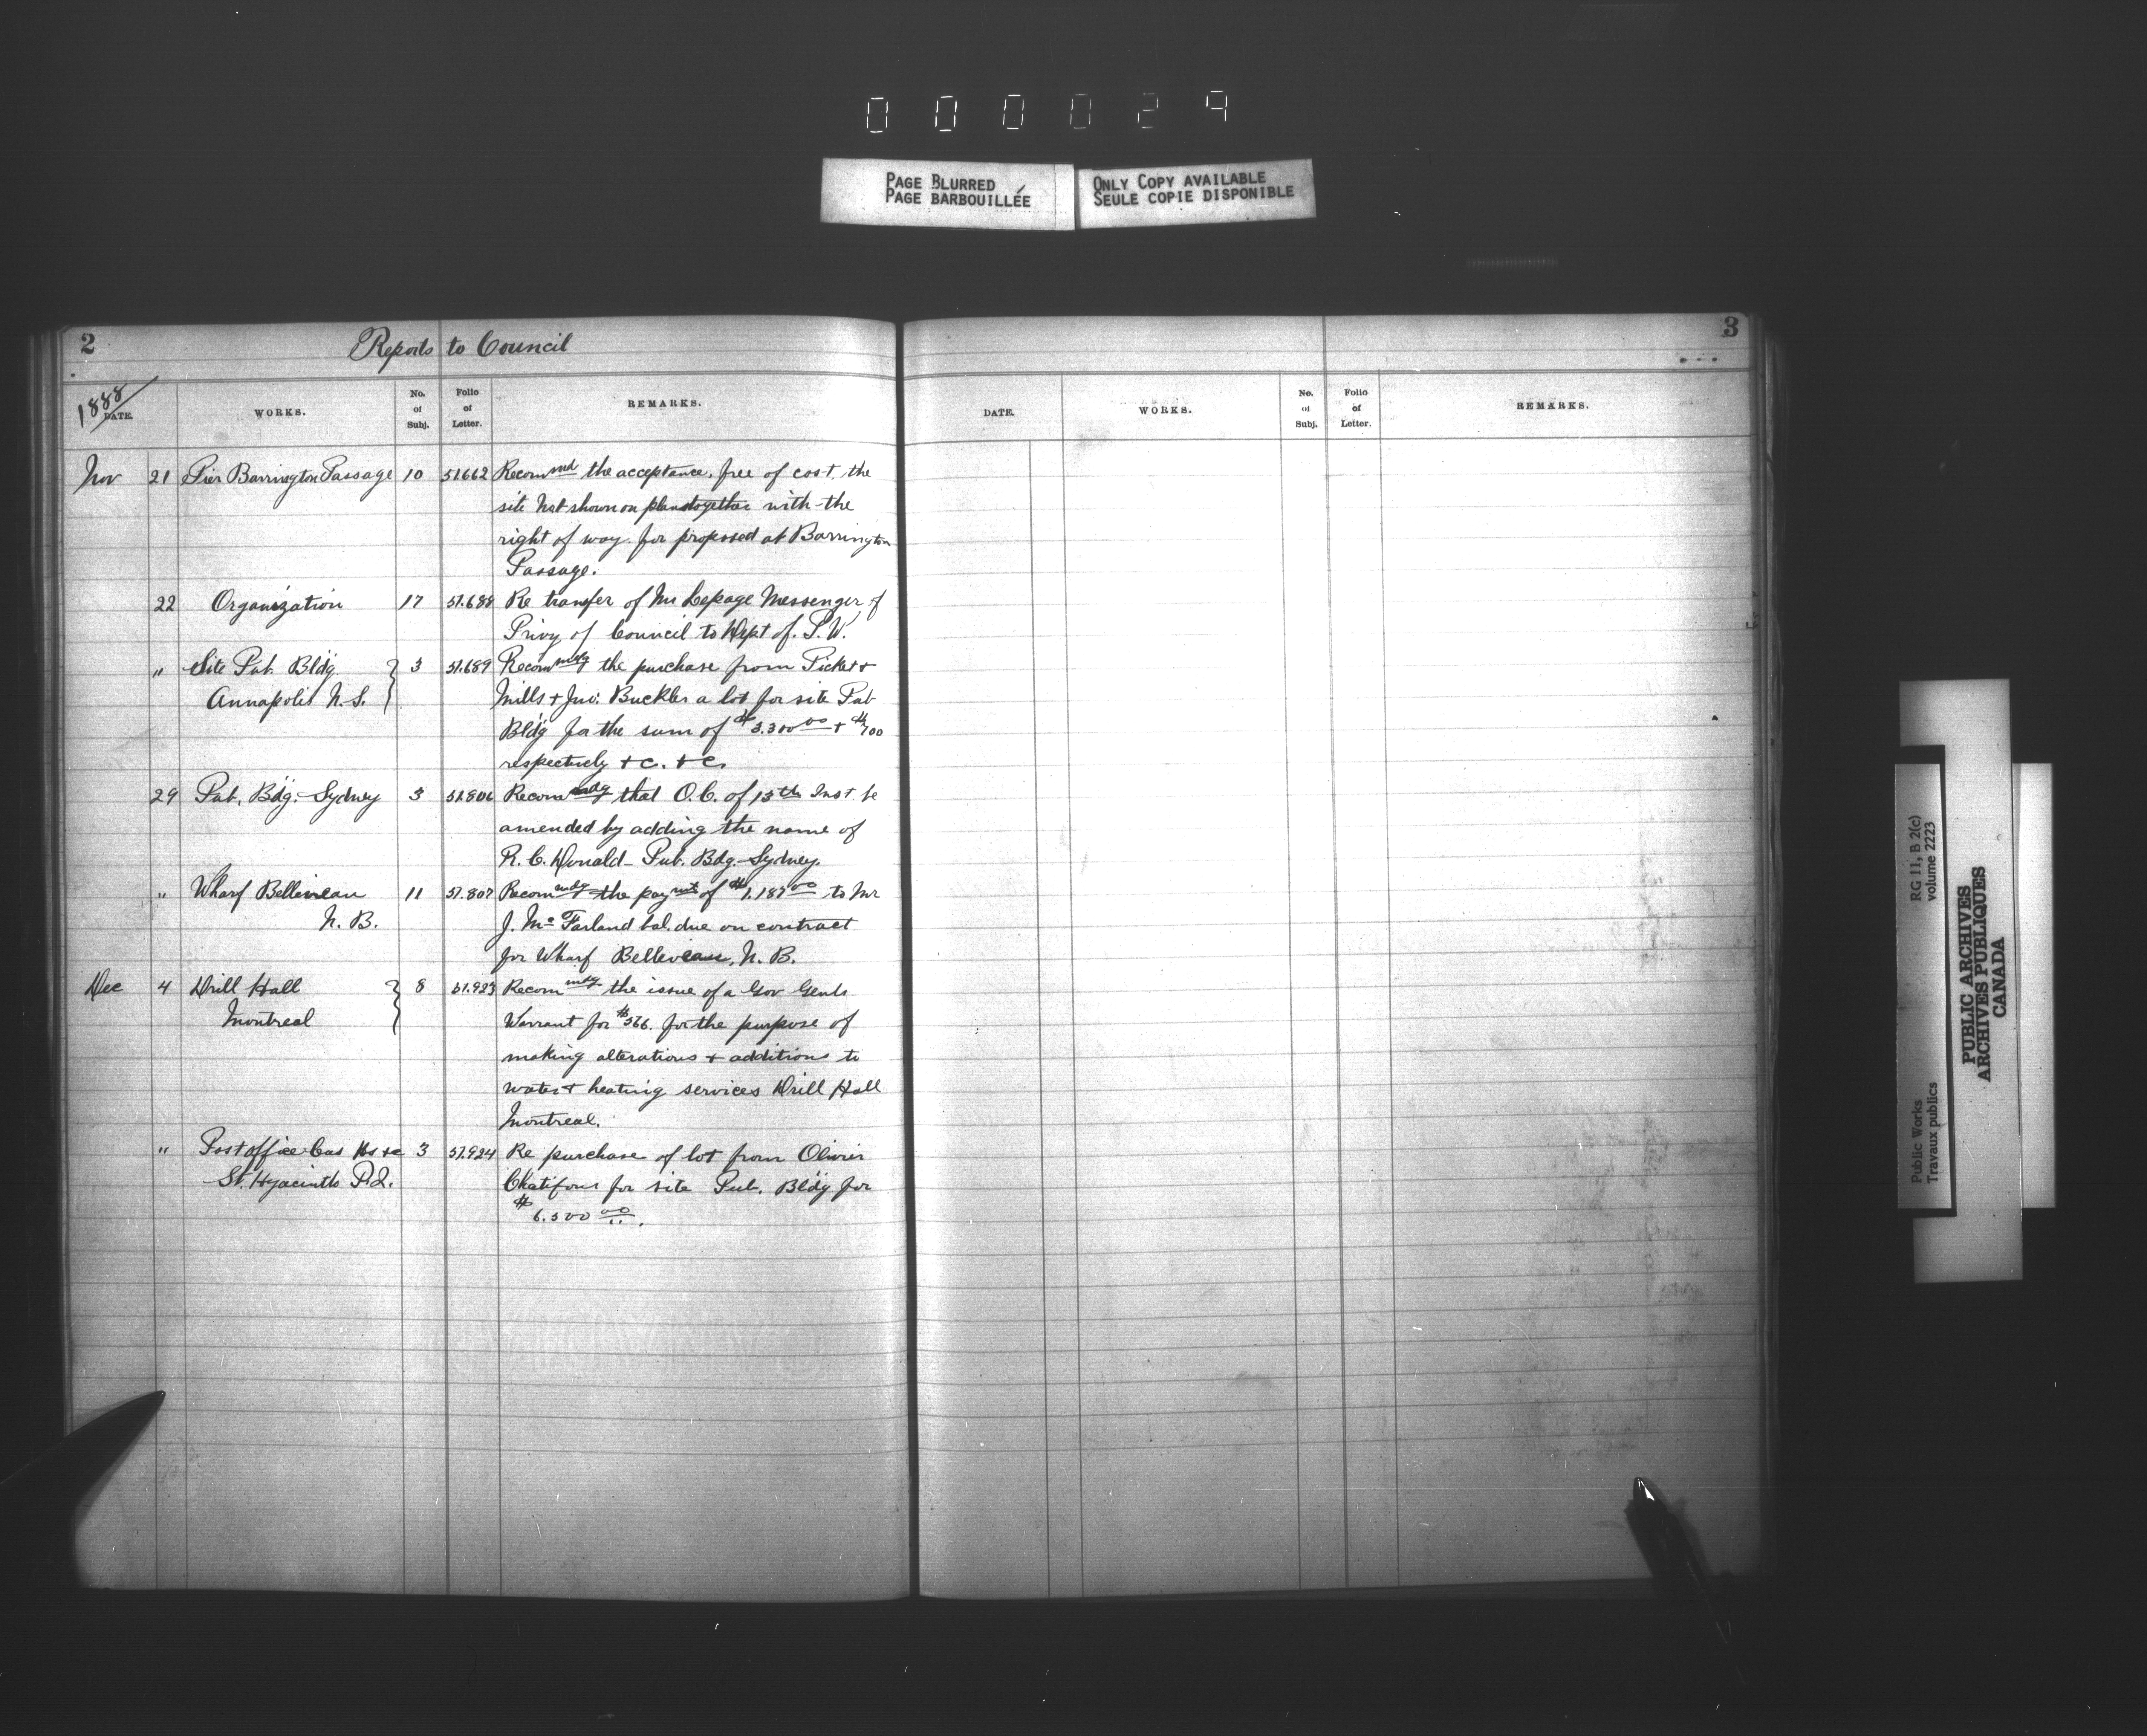 000029
PAGE BLURRED
PAGE BARBOUILLÉE
ONLY COPY AVAILABLE
SEULE COPIE DISPONIBLE
2 Reports to Council
1888
DATE. WORKS. No. of Subj. Folio of Letter. REMARKS.
Nov 21 Pier Barrington Passage 10 51662 Recommd the acceptance, free of cost, the
site not shown on plan together with the
right of way for proposed at Barrington
Passage.
22 Organization 17 51.688 Re transfer of Mr Lepage Messenger of
Privy of Council to Dept of. P.W.
" Site Pub. Bldg. 3 51.689 Recommdg the purchase from Pickets
Annapolis N.S. Mills + Jno: Buckler a lot for site Pub
Bldg for the sum of $3.300 00 + $700
respectively + c. + c.
29 Pub. Bdg. Sydney 3 51.806 Recommdg that O.C. of 15th Inst. be
amended by adding the name of
R. C. Donald Pub. Bdg. Sydney.
" Wharf Belliveau 11 51.807 Recommdg the paymt of $1.187 00 to Mr
N. B. J. Mc Farland bal. due on contract
for Wharf Belliveau, N. B.
Dec 4 Drill Hall 8 51.923 Recommdg the issue of a Gov Genls
Montreal Warrant for $566. for the purpose of
making alterations + additions to
water + heating services Drill Hall
Montreal.
" Post office Cus Hs &c 3 51.924 Re purchase of lot from Olivier
St. Hyacinth P.Q. Chatifoux for site Pub. Bldg for
$6.500 00.
3
DATE. WORKS. No. of Subj. Folio of Letter. REMARKS.
Public Works RG 11, B 2(c)
Travaux publics volume 2223
PUBLIC ARCHIVES
ARCHIVES PUBLIQUES
CANADA